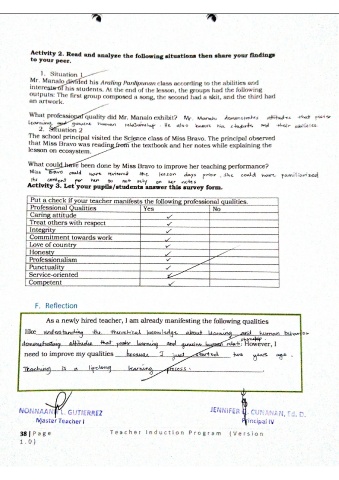 Activity 2. Read and analyze the following situations then share your findings
to your peer.
1. Situation 1
Mr. Manalo divided his Araling Panlipunan class according to the abilities and
interests of his students. At the end of the lesson, the groups had the following
outputs: The first group composed a song, the second had a skit, and the third had
an artwork.
What professional quality did Mr. Manalo exhibit? Mr. Manalo demonstrates attitudes that foster
learning and genuine human relationship. He also knows his students and their abilities.
2. Situation 2
The school principal visited the Science class of Miss Bravo. The principal observed
that Miss Bravo was reading from the textbook and her notes while explaining the
lesson on ecosystem.
What could have been done by Miss Bravo to improve her teaching performance?
Miss Bravo could have reviewed the lesson days prior, she could have familiarized
the content for her to not rely on her notes
Activity 3. Let your pupils/students answer this survey form.
Put a check if your teacher manifests the following professional qualities.
Professional Qualities Yes No
Caring attitude ✓
Treat others with respect ✓
Integrity ✓
Commitment towards work ✓
Love of country ✓
Honesty ✓
Professionalism ✓
Punctuality ✓
Service-oriented ✓
Competent ✓
F. Reflection
As a newly hired teacher, I am already manifesting the following qualities
like understanding the theoretical knowledge about learning and human behavior
demonstrating attitudes that foster learning and genuine human However, I
need to improve my qualities because I just started two years ago.
Teaching is a lifelong learning process.
NONNAAN L. GUTIERREZ
Master Teacher I
JENNIFER CUNANAN, Ed. D.
Principal IV
38 | Page
Teacher Induction Program (Version
1.0)